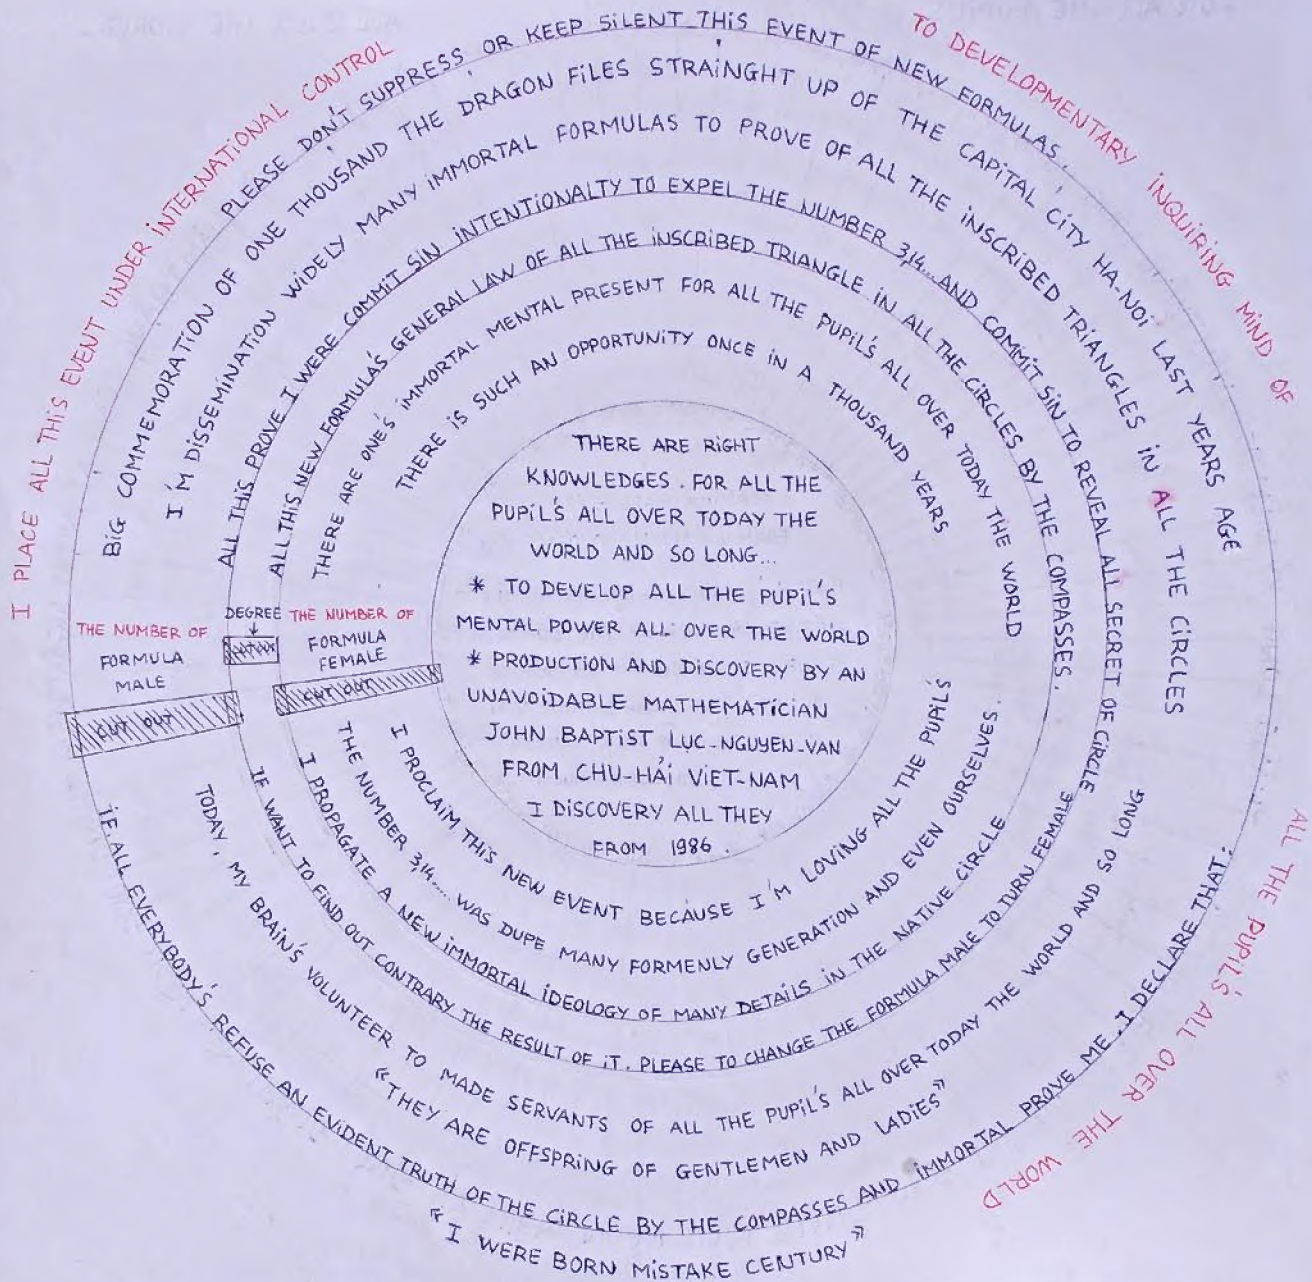 I PLACE ALL THIS EVENT UNDER INTERNATIONAL CONTROL
TO DEVELOPMENTARY INQUIRING MIND OF
ALL THE PUPIL'S ALL OVER THE WORLD
PLEASE DON'T SUPPRESS OR KEEP SILENT THIS EVENT OF NEW FORMULAS.
BIG COMMEMORATION OF ONE THOUSAND THE DRAGON FILES STRAINGHT UP OF THE CAPITAL CITY HA-NOI LAST YEARS AGE
I'M DISSEMINATION WIDELY MANY IMMORTAL FORMULAS TO PROVE OF ALL THE INSCRIBED TRIANGLES IN ALL THE CIRCLES
ALL THIS PROVE I WERE COMMIT SIN INTENTIONALTY TO EXPEL THE NUMBER 3,14... AND COMMIT SIN TO REVEAL ALL SECRET OF CIRCLE
ALL THIS NEW FORMULA'S GENERAL LAW OF ALL THE INSCRIBED TRIANGLE IN ALL THE CIRCLES BY THE COMPASSES.
THERE ARE ONE'S IMMORTAL MENTAL PRESENT FOR ALL THE PUPIL'S ALL OVER TODAY THE WORLD
THERE IS SUCH AN OPPORTUNITY ONCE IN A THOUSAND YEARS
THERE ARE RIGHT
KNOWLEDGES. FOR ALL THE
PUPIL'S ALL OVER TODAY THE
WORLD AND SO LONG...
* TO DEVELOP ALL THE PUPIL'S
MENTAL POWER ALL OVER THE WORLD
* PRODUCTION AND DISCOVERY BY AN
UNAVOIDABLE MATHEMATICIAN
JOHN BAPTIST LỤC-NGUYEN-VAN
FROM CHU-HẢI VIET-NAM
I DISCOVERY ALL THEY
FROM 1986.
THE NUMBER OF
FORMULA
MALE
DEGREE
THE NUMBER OF
FORMULA
FEMALE
CUT OUT
CUT OUT
I PROCLAIM THIS NEW EVENT BECAUSE I'M LOVING ALL THE PUPIL'S
THE NUMBER 3,14.... WAS DUPE MANY FORMENLY GENERATION AND EVEN OURSELVES.
I PROPAGATE A NEW IMMORTAL IDEOLOGY OF MANY DETAILS IN THE NATIVE CIRCLE
IF WANT TO FIND OUT CONTRARY THE RESULT OF IT. PLEASE TO CHANGE THE FORMULA MALE TO TURN FEMALE
TODAY, MY BRAIN'S VOLUNTEER TO MADE SERVANTS OF ALL THE PUPIL'S ALL OVER TODAY THE WORLD AND SO LONG
"THEY ARE OFFSPRING OF GENTLEMEN AND LADIES"
IF ALL EVERYBODY'S REFUSE AN EVIDENT TRUTH OF THE CIRCLE BY THE COMPASSES AND IMMORTAL PROVE ME. I DECLARE THAT:
"I WERE BORN MISTAKE CENTURY"